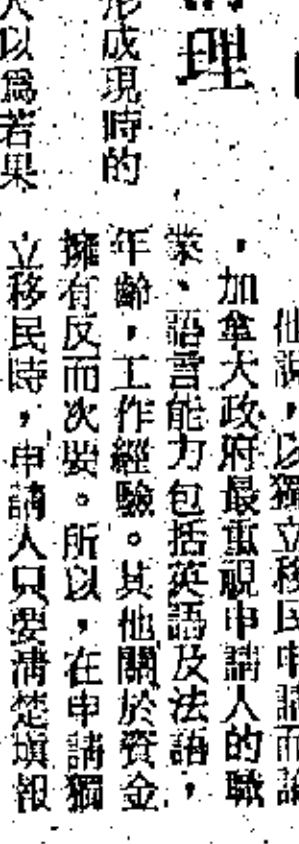 理
形成現時的
人以爲若果
他說，以獨立移民申請而論
，加拿大政府最重視申請人的職
業、語言能力包括英語及法語，
年齡，工作經驗。其他關於資金
擁有反而次要。所以，在申請獨
立移民時，申請人只要清楚填報